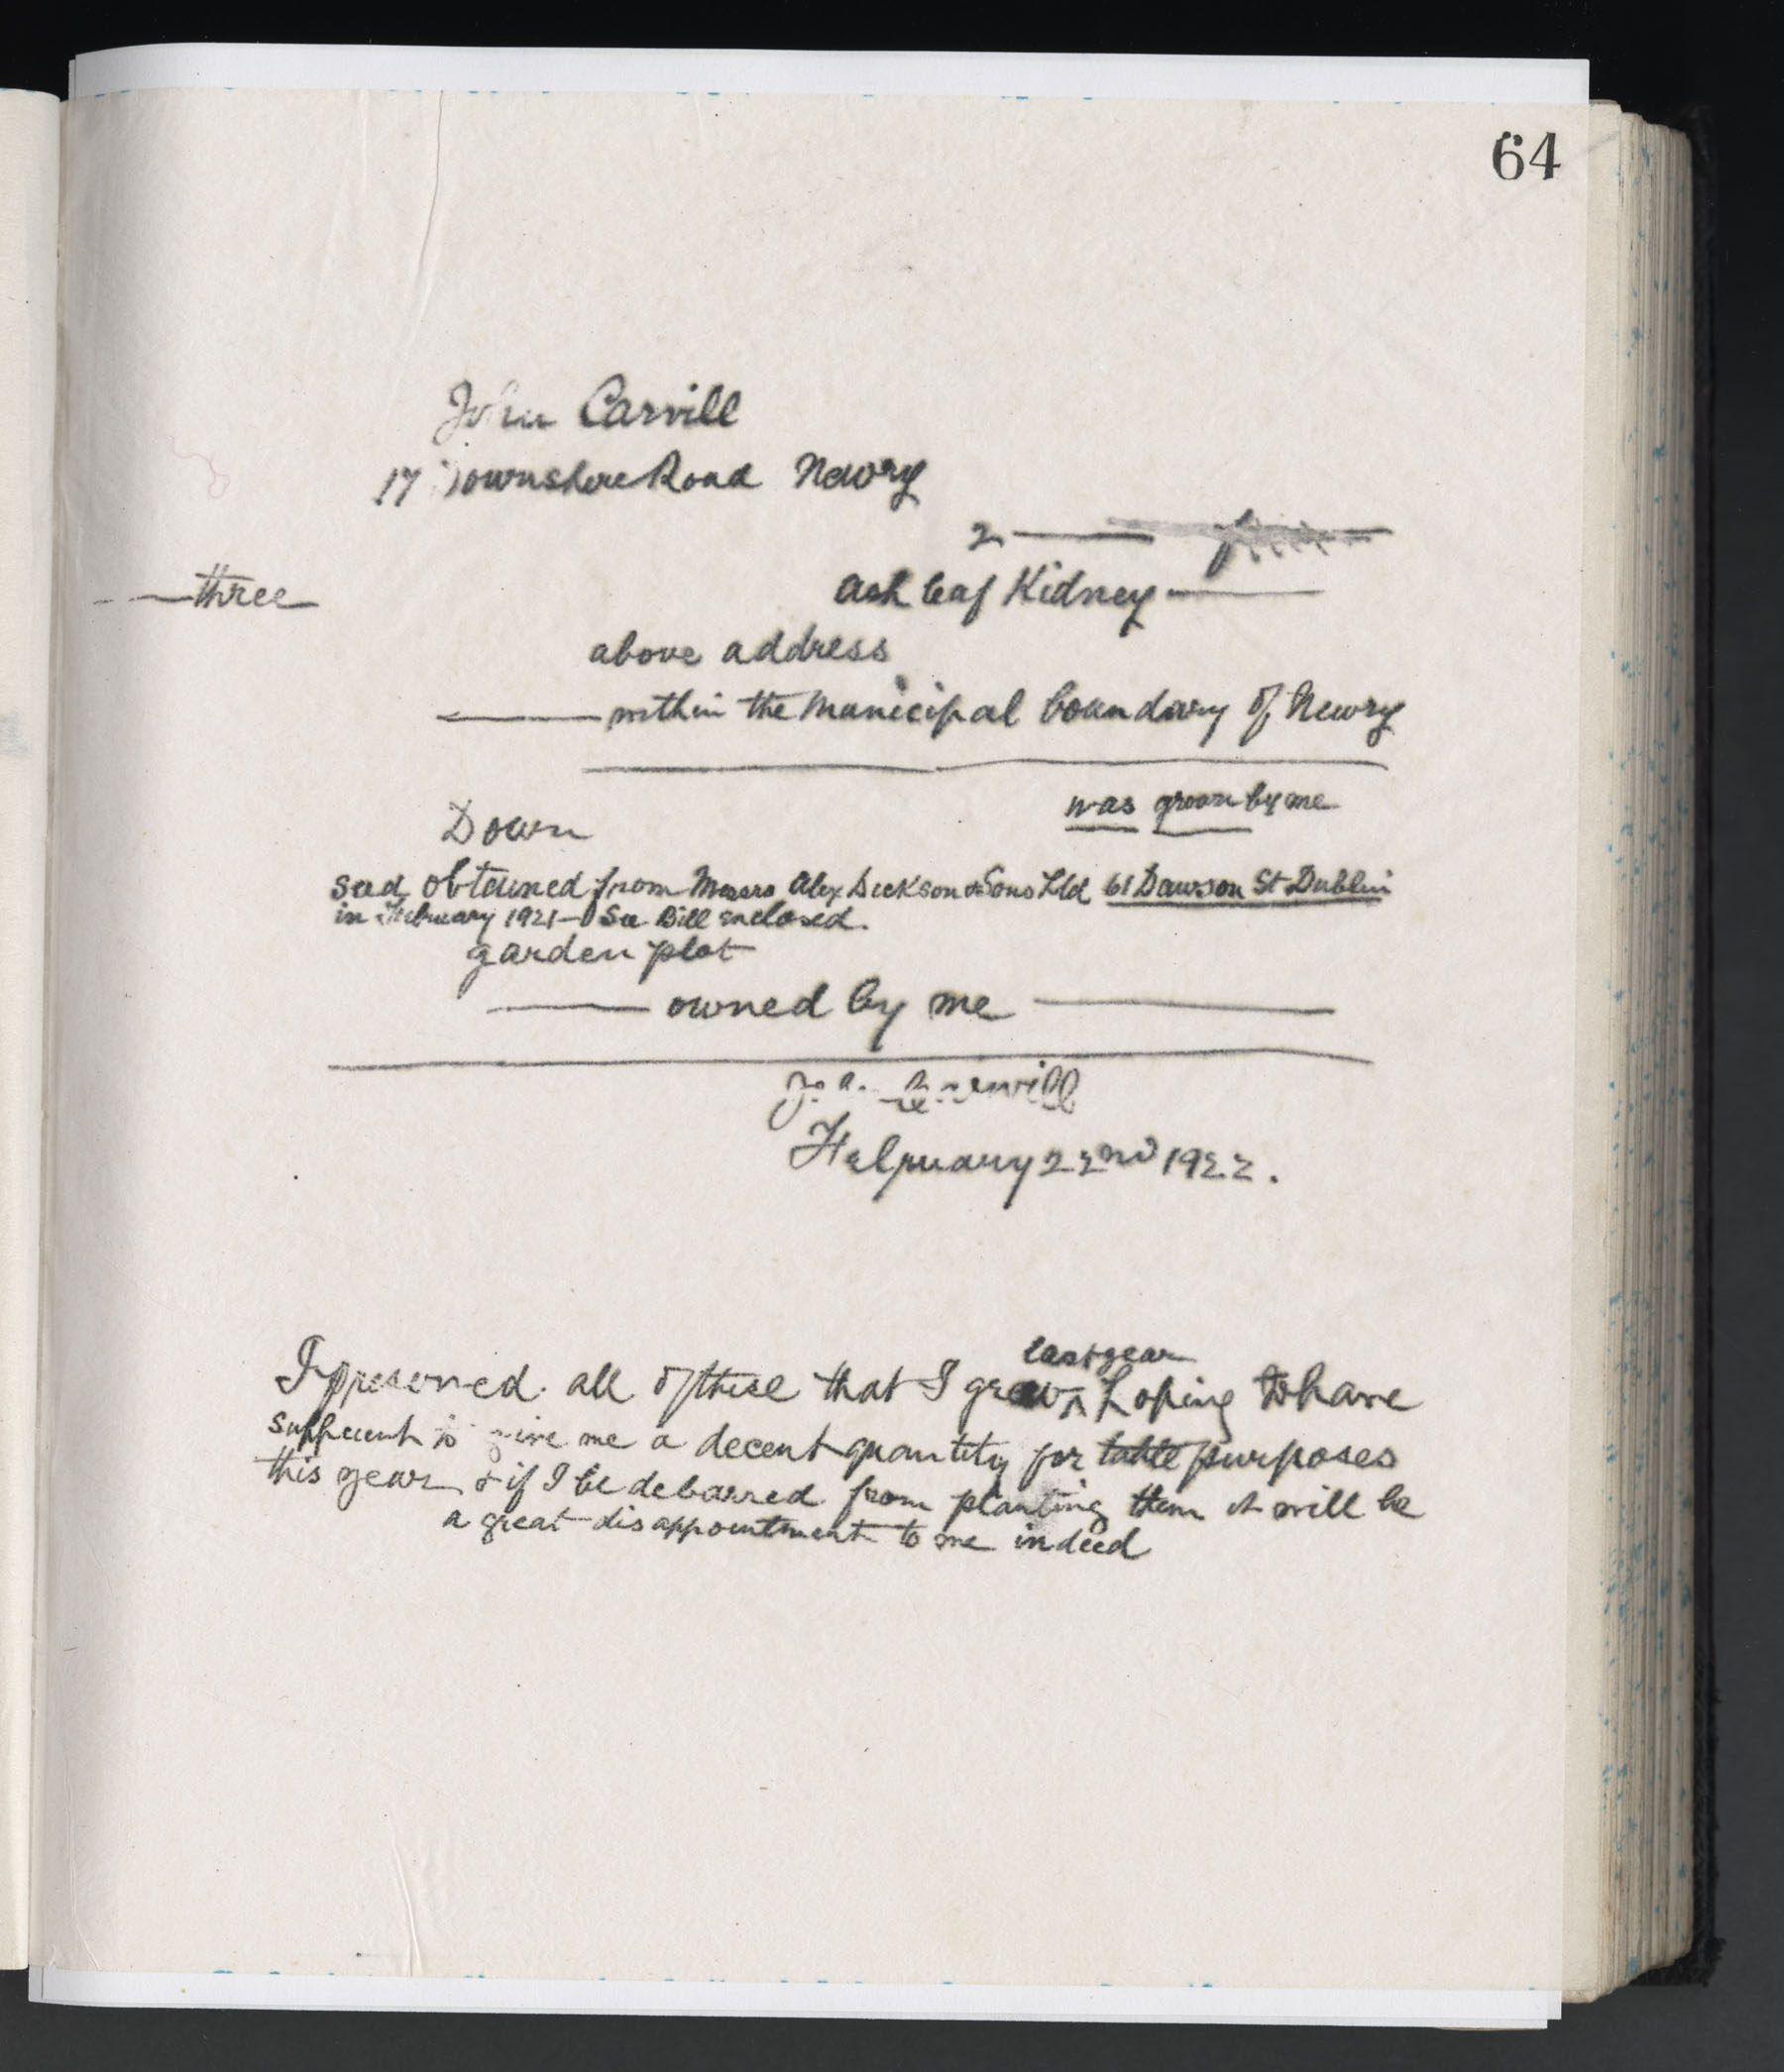 64
John Carvill
17 Downshire Road Newry
2
three
Ash leaf Kidney
above address
within the Municipal boundary of Newry
was grown by me
Down
Seed obtained from Messrs Alex Dickson & Sons Ltd 61 Dawson St Dublin
in February 1921 - See Bill enclosed.
garden plot
owned by me
J. A. Carvill
February 22nd 1922.
last year
I preserved all of these that I grew ^ hoping to have
sufficient to give me a decent quantity for table purposes
this year & if I be debarred from planting them it will be
a great disappointment to me indeed